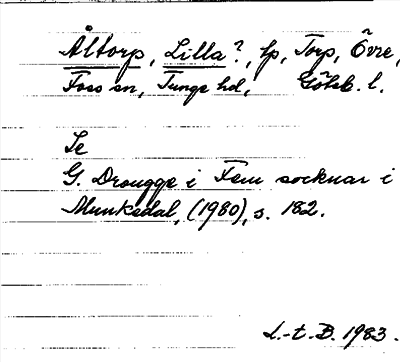 Åltorp, Lilla?, lp, Torp, Övre,
Foss sn, Tunge hd, Göteb. l.
Se
G. Drougge i Fem socknar i
Munkedal, (1980), s. 182.
L.-t. B. 1983.